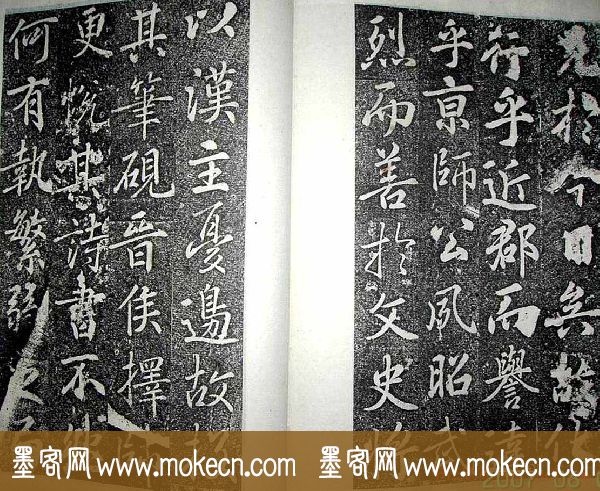 見於今日矣故使
行乎近郡而譽
乎京師公風昭武
烈而善於文史
以漢主憂邊故
其筆硯晉侯擇帥
更悅其詩書不
何有執繁弱之
墨客网 www.mokecn.com 墨客网 www.mokecn.com
2007 08